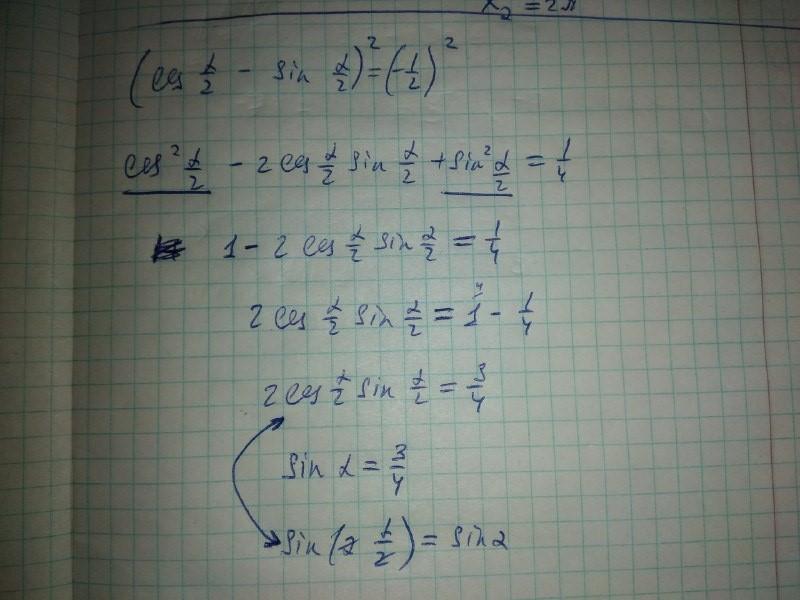 x₂ = 2π
(cos α/2 - sin α/2)² = (-1/2)²
cos² α/2 - 2 cos α/2 sin α/2 + sin² α/2 = 1/4
1 - 2 cos α/2 sin α/2 = 1/4
2 cos α/2 sin α/2 = 1 - 1/4
2 cos α/2 sin α/2 = 3/4
sin α = 3/4
sin(2 α/2) = sin α